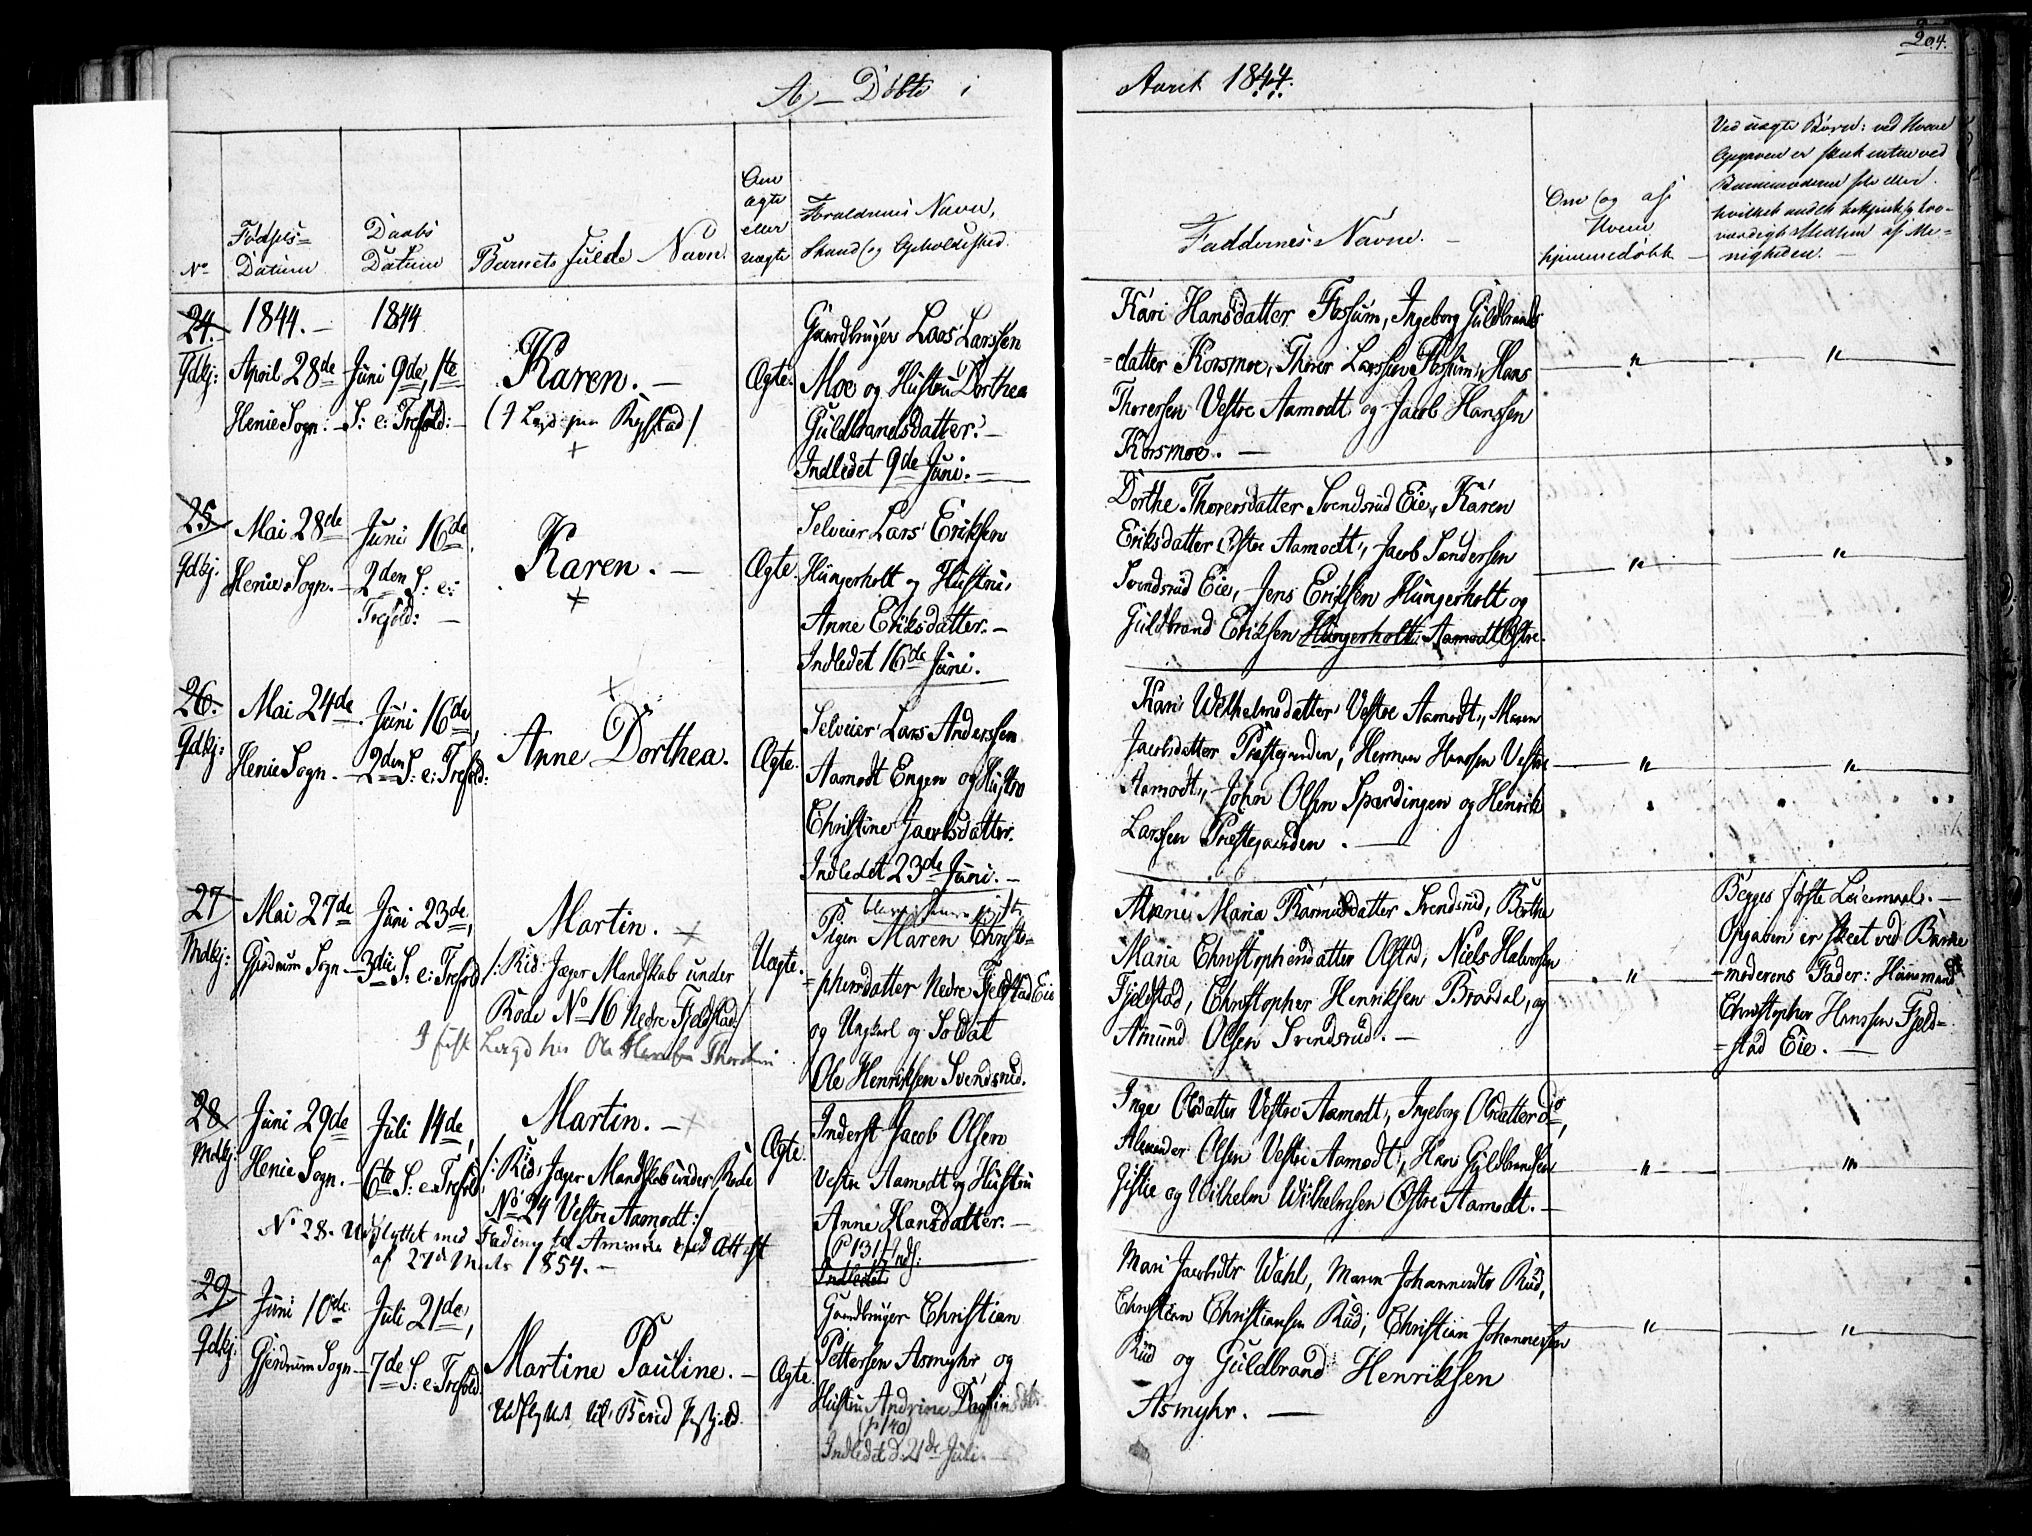 204.
A, – Døbte i
Aaret 1844.
No
Fødsels=
Datum
Daabs
Datum
Barnets fulde Navn.
Om
ægte
eller
uægte
Forældrenes Navn,
Stand og Opholdssted.
Faddernes Navne. –
Om og af
Hvem
hjemmedøbt
Ved uægte Børn: ved Hvem
Opgaven er skeet enten ved
Barnemoderen selv eller
hvilket andet bekjendt og tro-
værdigt Medlem af Me-
nigheden. –
24.
Qdkj:
1844. –
April 28de
Henie Sogn. –
1844
Juni 9de, 1ste
S: e: Trefold: –
Karen. –
+
Ægte.
Gaardbruger Lars Larssen
Moe og Hustru Dorthea
Guldbrandsdatter. –
Indledet 9de Juni. –
Kari Hansdatter Fossum, Ingeborg Guldbrands
=datter Korsmoe, Thorer Larssen Fossum, Hans
Thoressen Vestre Aamodt og Jacob Hanssen
Korsmoe. –
"
"
25
Qdkj.
Mai 28de
Henie Sogn. –
Juni 16de,
2den S: e:
Trefold: –
Karen. –
+
Ægte.
Selveier Lars Eriksen
Hungerholt og Hustru
Anne Eriksdatter. –
Indledet 16de Juni.
Dorthe Thorersdatter Svendsrud Eie, Karen
Eriksdatter Østre Aamodt, Jacob Sandersen
Svendsrud Eie, Jens Eriksen Hungerholt og
Guldbrand Eriksen Hungerholt Aamodt Østre.
"
"
26.
Qdkj:
Mai 24de
Henie Sogn. –
Juni 16de,
2den S: e: Trefold:
+
Anne Dorthea.
Ægte.
Selveier Lars Anderssen
Aamodt Engen og Hustro
Christine Jacobsdatter.
Indledet 23de Juni. –
Kari Wilhelmsdatter Vestre Aamodt, Maren
Jacobsdatter Præstegaarden, Herman Hanssen Vestre
Aamodt, John Olsen Spærdingen og Henrik
Larssen Præstegaarden. –
"
"
27
Mdkj:
Mai 27de
Gjerdrum Sogn –
Juni 23de,
3die S: e: Trefold
Martin. +
/: Rid: Jæger Mandskab under
Rode No 16 Nedre Fjeldstad :/
Uægte.
Pigen Maren Christo=
=phersdatter Nedre Fjeldstad Eie
og Ungkarl og Soldat
Ole Henriksen Svendsrud.
Anne Maria Rasmusdatter Svendsrud, Berthe
Maria Christophersdatter Olstad, Niels Halvorsen
Fjeldstad, Christopher Henriksen Braadal, og
Amund Olsen Svendsrud. –
"
Begges første Leiermaal. –
Opgaven er skeet ved Barne
=moderens Fader: Huusmand
Christopher Hanssen Fjeld=
=stad Eie. –
28
Mdkj:
Juni 29de
Henie Sogn. –
Juli 14de,
6te S: e: Trefold.
Martin. – +
/: Rid: Jæger Mandskab under Rode
No 24 Vestre Aamodt :/
No 28. Udflyttet med Fader til Amerika med Attest
af 27de Marts 1854. –
Ægte.
Inderst Jacob Olsen
Vestre Aamodt og Hustru
Anne Hansdatter. –
(P 131)
Indledet
Inge Olsdatter Vestre Aamodt, Ingeborg Olsdatter do,
Alexander Olsen Vestre Aamodt, Hans Guldbrandsen
Gistie og Wilhelm Wilhelmsen Østre Aamodt. –
"
"
29
Qdkj:
Juni 10de
Gjerdrum Sogn –
Juli 21de,
7de S: e: Trefold.
Martine Pauline. –
Ægte.
Gaardbruger Christian
Pettersen Asmyhr og
Hustru Andrine
(p 140)
Indledet d. 21de Juli. –
Mari Jacobsdtr Wahl, Maren Johannesdtr Rud,
Christian Christiansen Rud, Christian Johannessen
Rud og Guldbrand Henriksen
Asmyhr. –
"
"